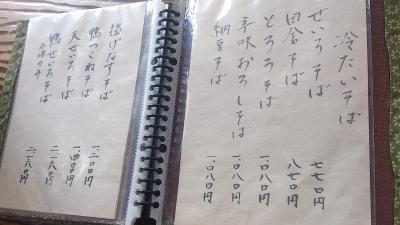 冷たいそば
せいろそば 七七〇円
田舎そば 八七〇円
とろろそば 一〇八〇円
辛味おろしそば 一〇八〇円
納豆そば 一〇八〇円
揚げなすそば 一二〇〇円
鴨つくねそば 一四〇〇円
天せいろそば 二一八〇円
鴨せいろそば 二二八〇円